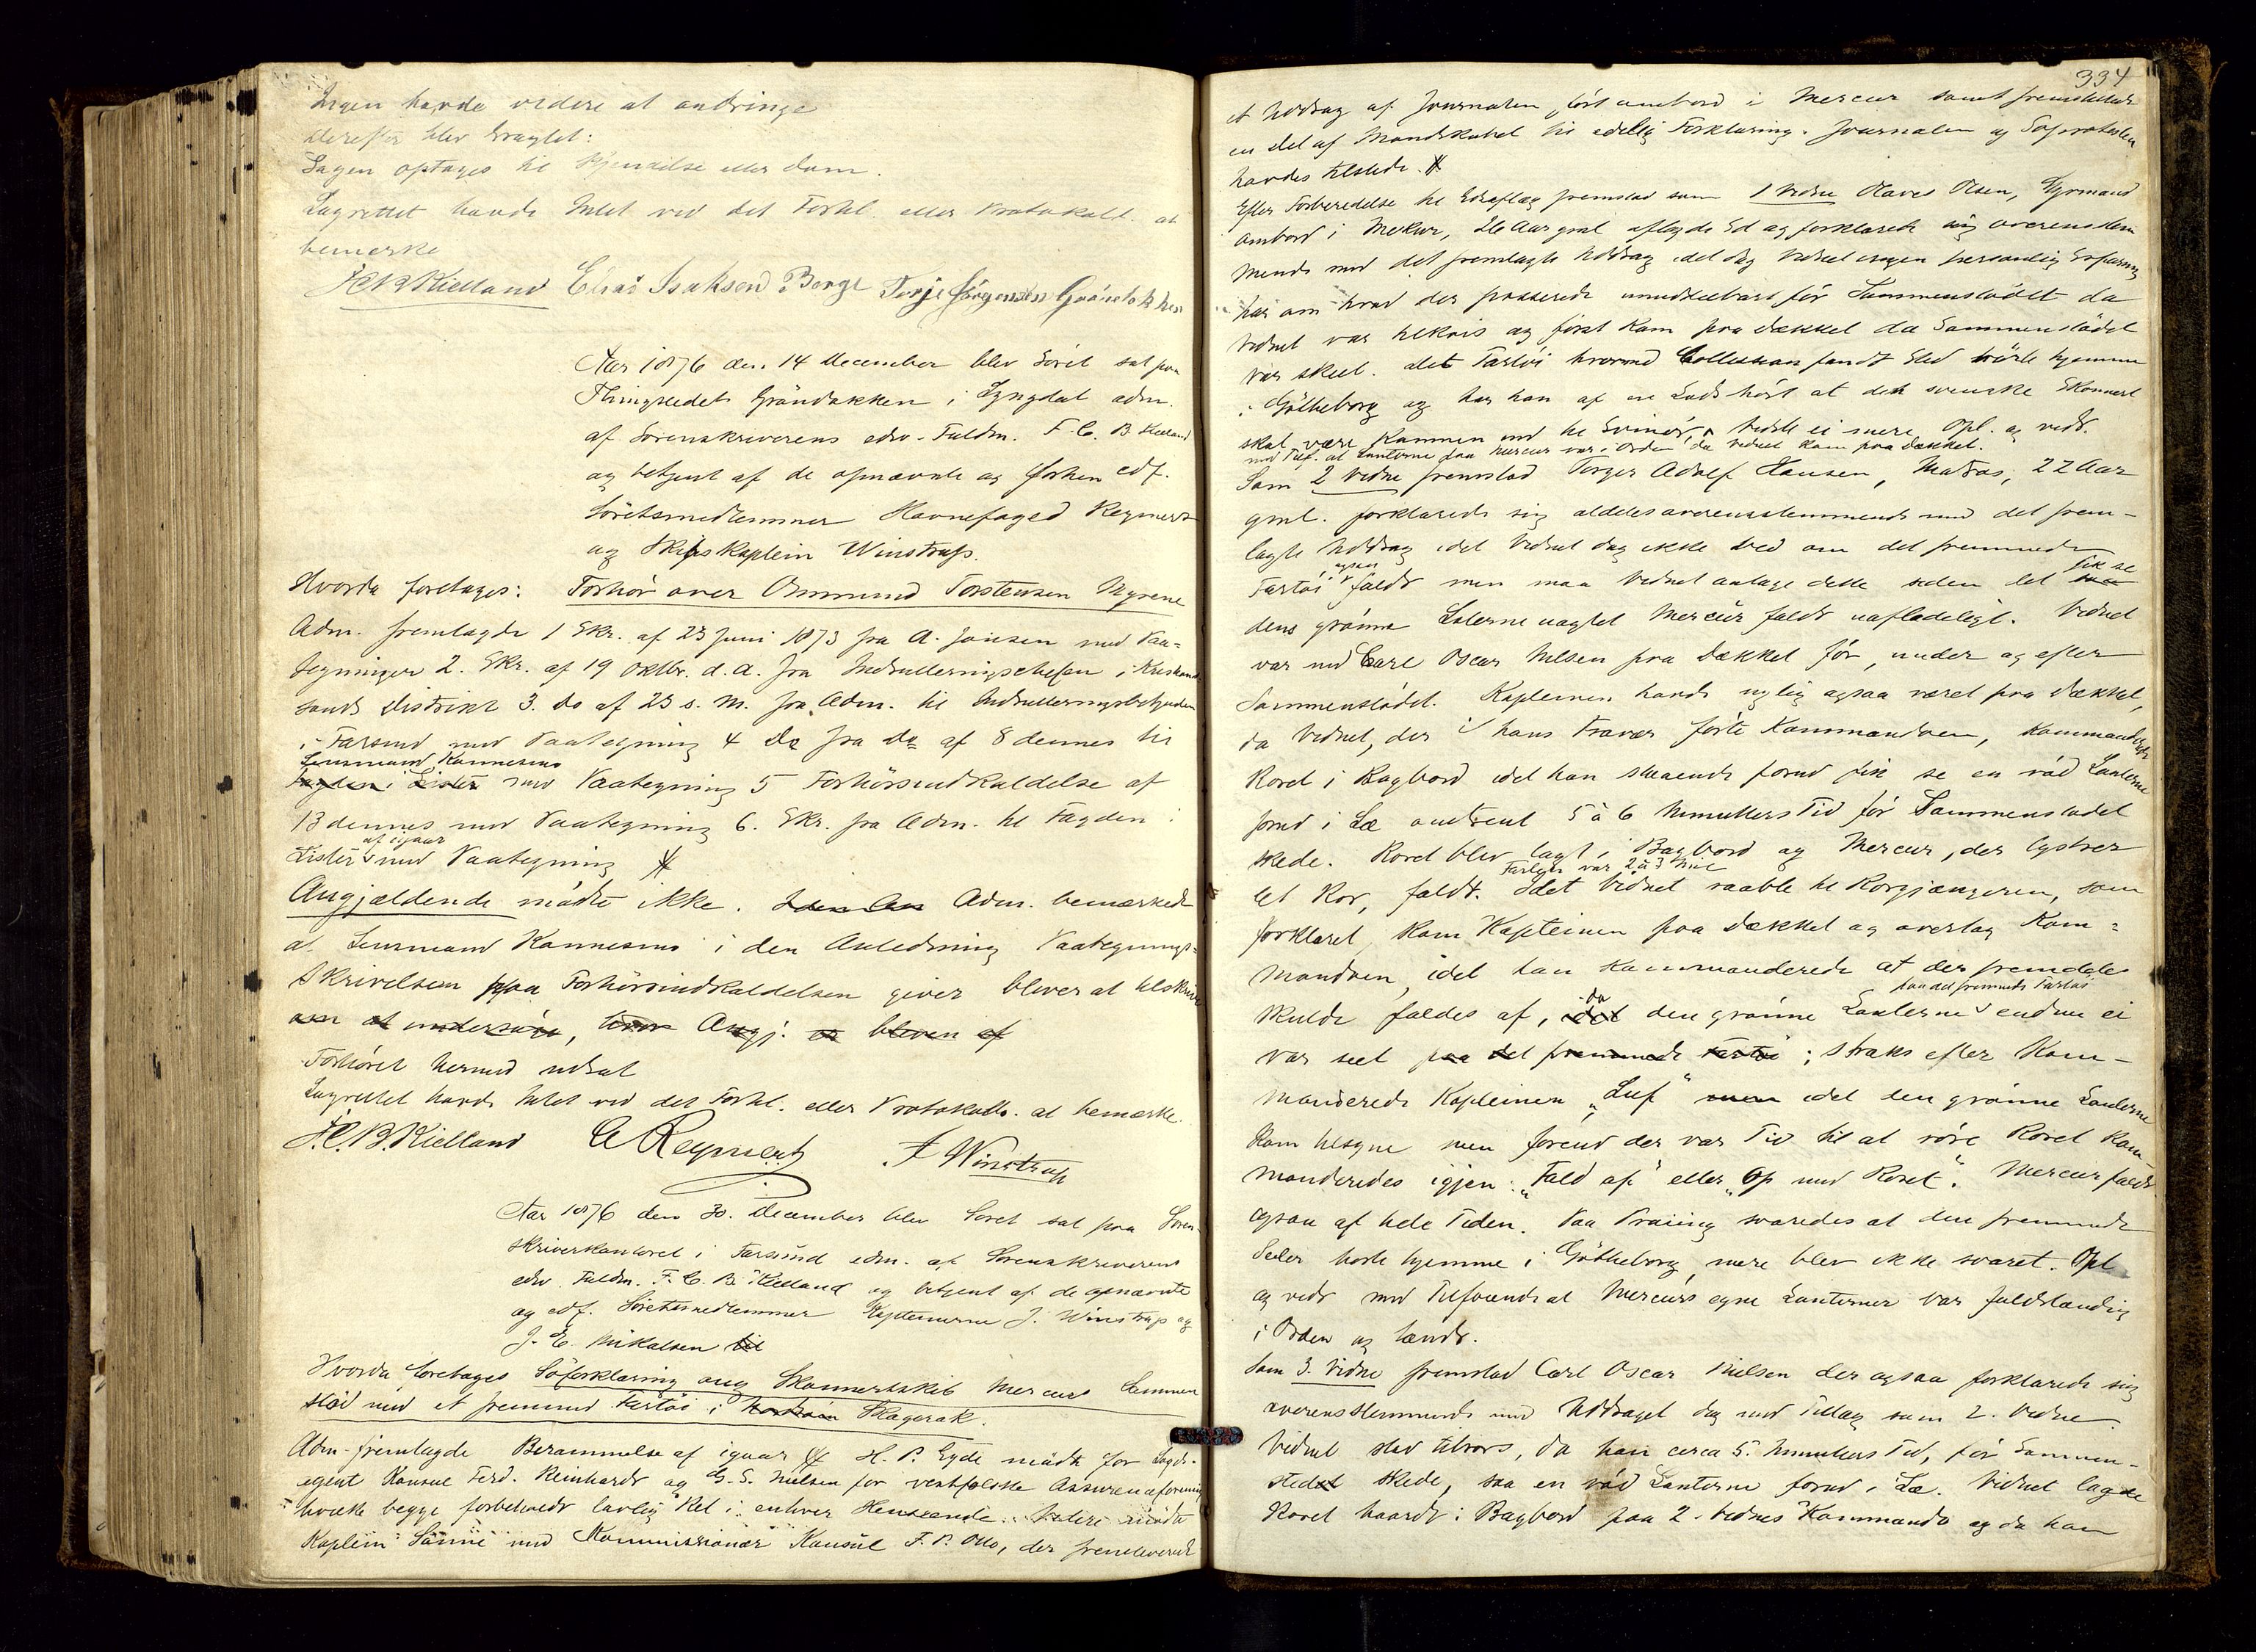 Ingen havde videre at anbringe
Derefter blev eragtet:
Sagen optages til Kjendelse eller Dom.
Lagrettet havde Intet ved det Forhl. eller Protokoll. at
bemærke
F.C.B. Kielland Elias Isaksen Berge Terje Jørgensen
Aar 1876 den 14 December blev Soret sat paa
Thingstedet Grøndokken i Lyngdal adm.
af Sorenskriverens edsv. Fuldm. F. C. B. Kielland
og betjent af de opnævnte og edf.
Søretsmedlemmer Havnefoged Reymert
og Skibskaptein Winstrup.
Hvorda foretages: Forhør over Ommund Torstensen Myrene
Adm. fremlagde 1 Skr. af 23 Juni 1873 fra A. Jansen med Paa-
tegninger 2. Skr. af 19 Oktbr. d.A. fra Indrulleringschefen i Kristian
sands Distrikt 3. Do af 23 s. M. fra Adm. til Indrulleringsbetjenten
i Farsund med Paategning 4 Do fra Do af 8 dennes til
Lensmand Kannesens
Fogden i Lister med Paategning 5 Forhørsindkaldelse af
13 dennes med Paategning 6. Skr. fra Adm. til Fogden i
af igaar
Lister med Paategning
Angjældende mødte ikke. Adm. bemærkede
at Lensmand Kannesens i den Anledning Paategnings-
Skrivelsen paa Forhørsindkaldelsen giver bliver at tilskrive
om at undersøge, hvor Angj. er bleven af
Forhøret hermed udsat
Lagrettet havde Intet ved det Forhl. eller Protokoll. at bemærke.
F.C.B. Kielland C Reymert J Winstrup
Aar 1876 den 30. December blev Soret sat paa Soren-
skriverkontoret i Farsund adm. af Sorenskriverens
edsv. Fuldm. F. C. B. Kielland og betjent af de opnævnte
og edf. Søretsmedlemmer Kapteinerne J. Winstrup og
J. E. Mikalsen til
Hvorda foretages Søforklaring ang Skonnertskib Mercurs Sammen
stød med et fremmed Fartøi i Skagerak.
Adm. fremlagde Berammelse af igaar H. P. Eyde mødte for Lloyds-
agent Konsul Ferd. Reinhardt og G. S. Nielsen for vestfoldske Assuranceforening
hvilke begge forbeholdt lovlig Ret i enhver Henseende. Videre mødte
Kaptein Sanne med Kommissionær Konsul F. P. Otto, der fremleverede
334
et Uddrag af Journalen, ført ombord i Mercur samt fremstillede
en Del af Mandskabet til edelig Forklaring. Journalen og Søprotesten
havdes tilstede.
Efter Forberedelse til Edsaflæg fremstod som 1 Vidne Olaves Olsen, Styrmand
ombord i Merkur, 26 Aar gml. aflagde Ed og forklarede sig overensstem
mende med det fremlagte Uddrag idet dog Vidnet ingen personlig Erfaring
har om hvad der passerede umiddelbart før Sammenstødet da
Vidnet var tilkøis og først kom paa Dækket da Sammenstødet
var skeet. Det Fartøi hvormed Collisionen fandt Sted hørte hjemme
i Gøtheborg og har han af en Lods hørt at den svenske Skonnert
skal være kommen ind til Svinør, Vidste ei mere Opl. og vedt.
med Tilf. at Lanterne paa Mercur var i Orden da Vidnet kom paa Dækket.
Som 2 Vidne fremstod Torger Adolf Hansen, Matros, 22 Aar
gml. forklarede sig aldeles overensstemmende med det frem-
lagte Uddrag idet Vidnet dog ikke ved om det fremmede
ogsaa fik se
Fartøi faldt men maa Vidnet antage dette siden det saa
dens grønne Lanterne uagtet Mercur faldt uafladeligt. Vidnet
var med Carl Oscar Nielsen paa Dækket før, under og efter
Sammenstødet. Kapteinen havde nylig ogsaa været paa Dækket,
da Vidnet, der i hans Fravær førte Kommandoen, kommanderede
Roret i Bagbord idet han staaende forud fik se en rød Lanterne
forud i Læ omtrent 5 à 6 Minutters Tid før Sammenstødet
skede. Roret blev lagt i Bagbord og Mercur, der lystrer
Farten var 2 à 3 Mil
let Ror, faldt. Idet Vidnet raabte til Rorgjængeren, som
forklaret, kom Kapteinen paa Dækket og overtog Kom-
mandoen, idet han kommanderede at der fremdeles
paa det fremmede Fartøi
skulde faldes af, da den grønne Lanterne endnu ei
var seet paa det fremmede Fartøi; straks efter kom-
manderede Kapteinen "Luf" men idet den grønne Lanterne
kom tilsyne men forend der var Tid til at røre Roret kom-
manderedes igjen: "Fald af" eller "Op med Roret". Mercur faldt
ogsaa af hele Tiden. Paa Praiing svaredes at den fremmede
Seiler hørte hjemme i Gøtheborg, mere blev ikke svaret. Opl
og vedt med Tilføiende at Mercurs egne Lanterner var fuldstændig
i Orden og tændt.
Som 3. Vidne fremstod Carl Oscar Nielsen der ogsaa forklarede sig
overensstemmende med Uddraget dog med Tillæg som 2. Vidne
Vidnet stod tilrors, da han circa 5. Minutters Tid, før Sammen-
stødet skede, saa en rød Lanterne forud i Læ. Vidnet lagde
Roret haardt i Bagbord paa 2. Vidnes Kommando og da han